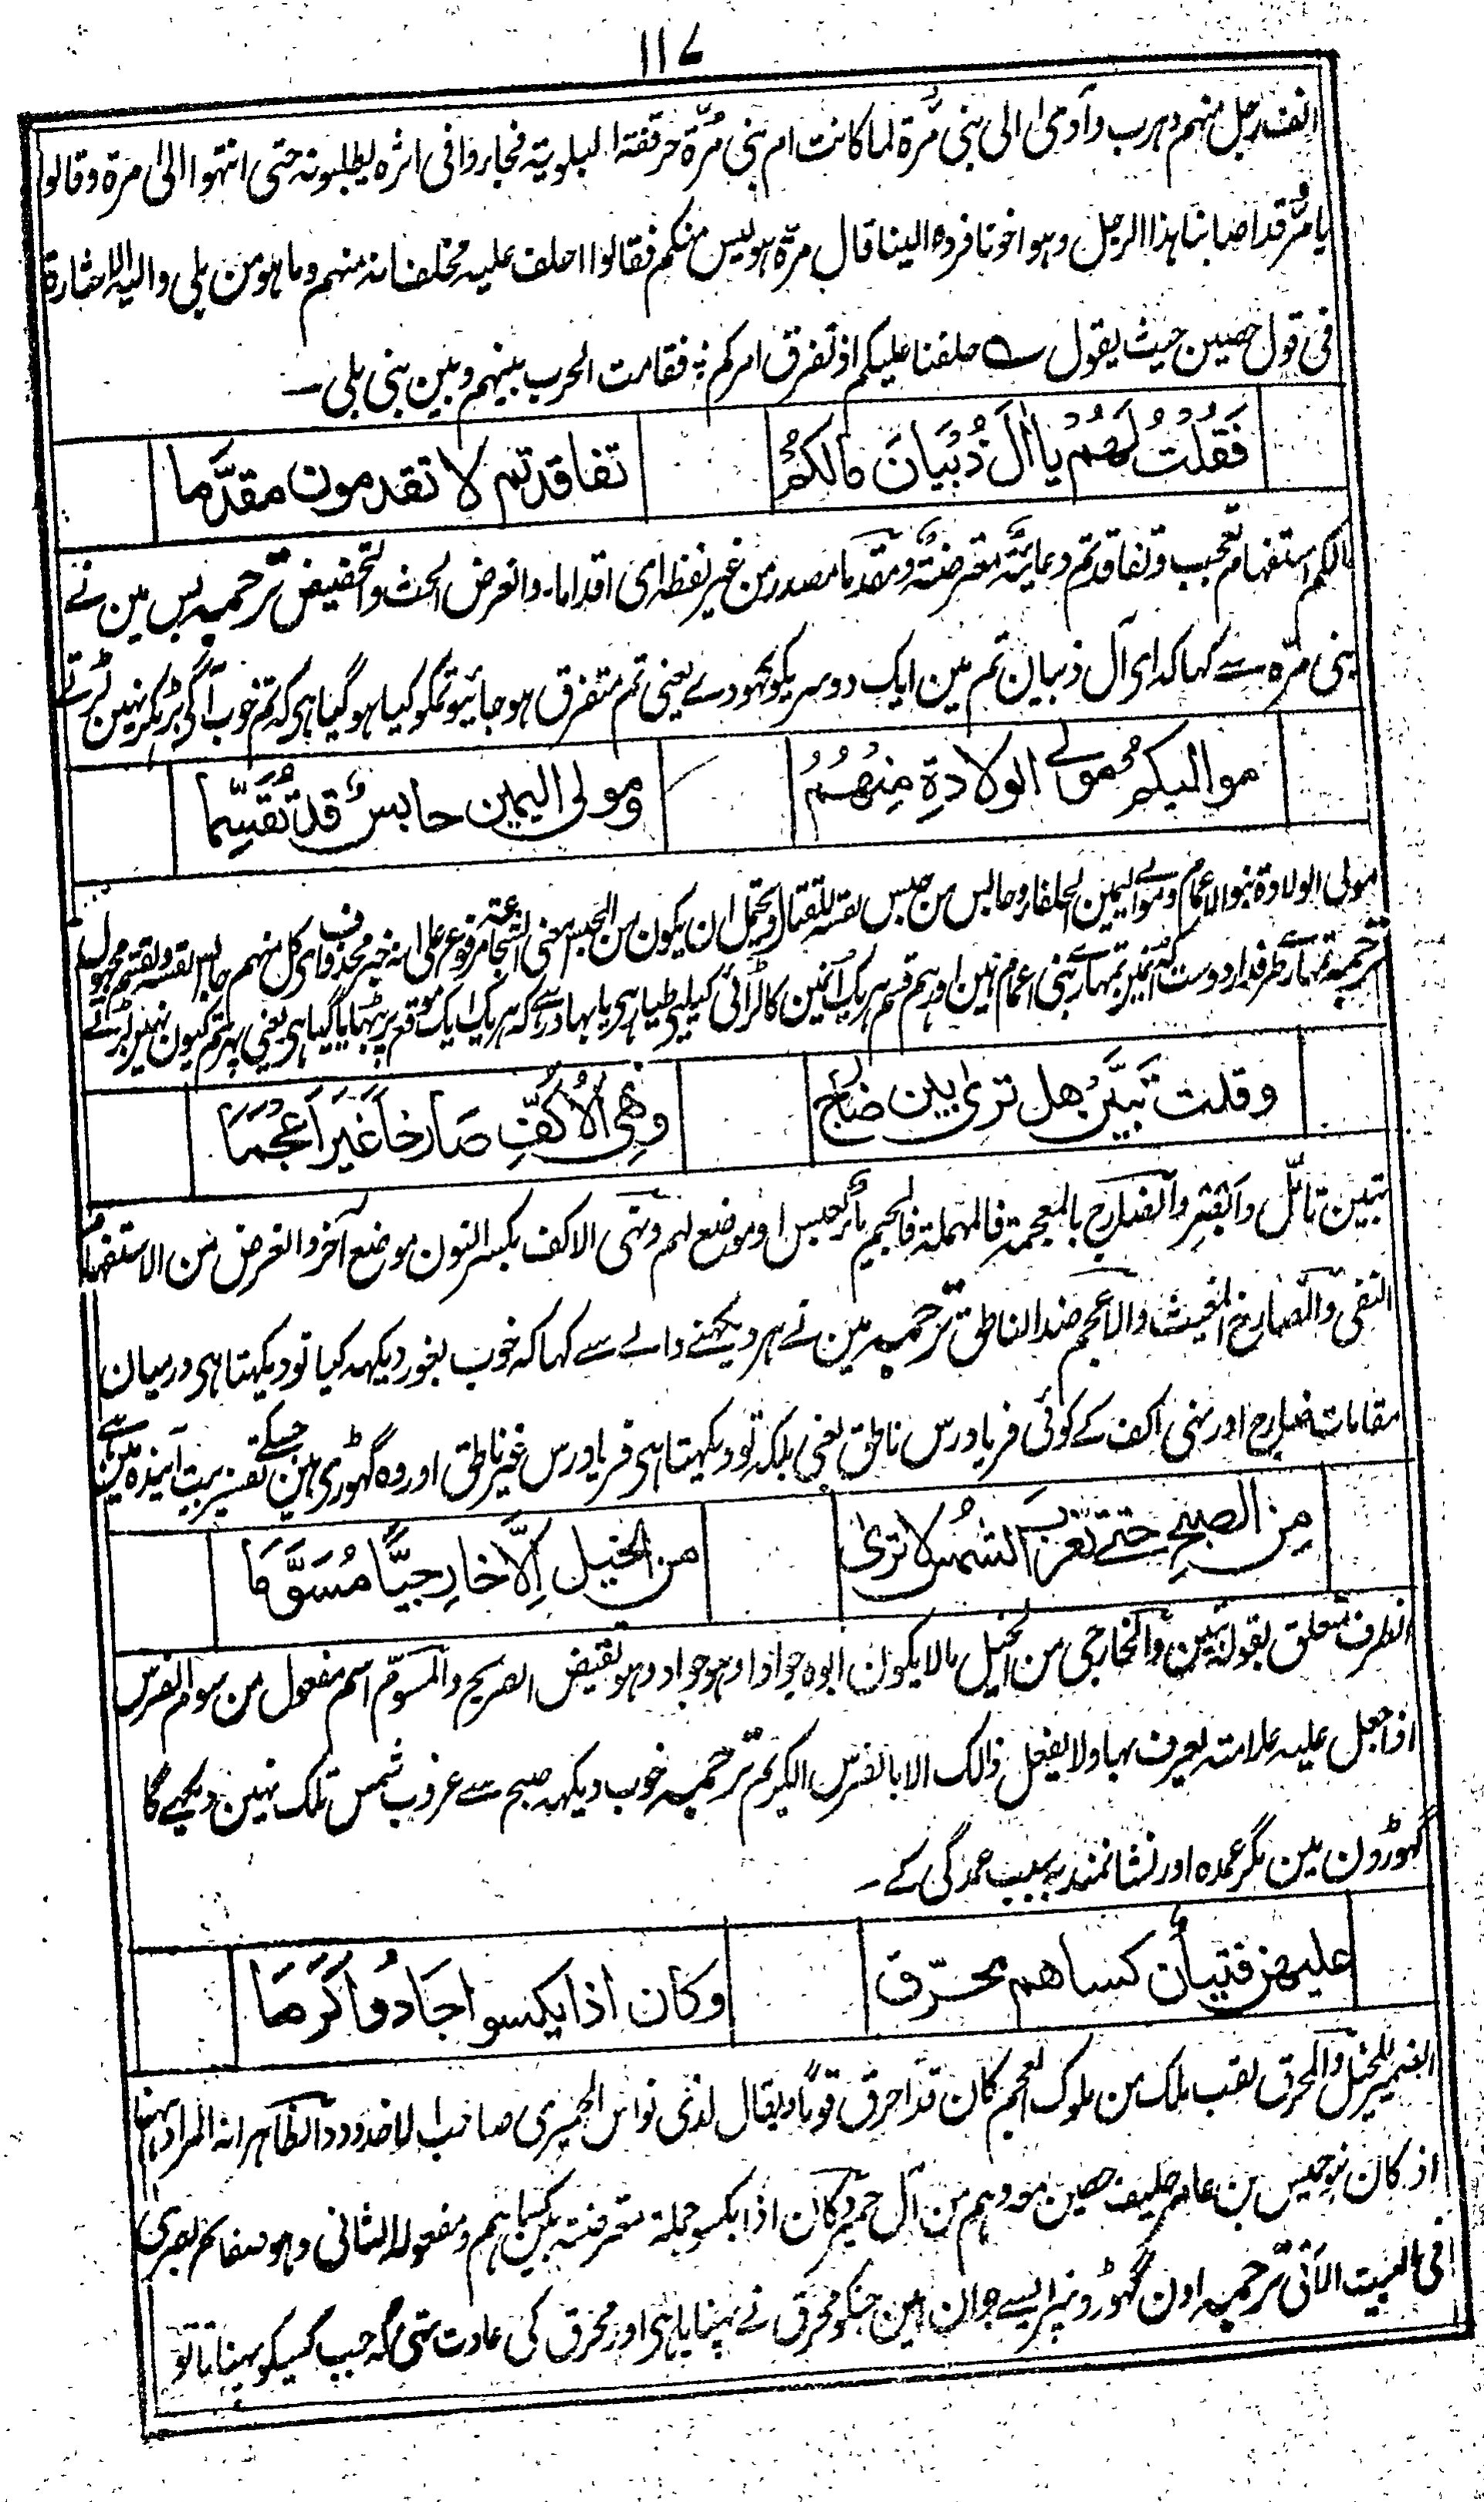 ١١٧
انفسد رجل منهم وهرب وآوى الى بنى مُرَّة لما كانت ام بنى مُرَّة حرقفة البلوية فجاءوا فى اثره يطلبونه حتى انتهوا الى مرة وقالوا
يا مُرَّ قد اصابنا هذا الرجل وهو اخونا فردّه الينا قال مرّة هو ليس منكم فقالوا احلف عليه فحلف انه منهم وما هو من بلى واليه الاشارة
فى قول حصين حيث يقول ؎ حلفنا عليكم اذ تفرق امركم ؛ فقامت الحرب بينهم وبين بنى بلى ـ
فَقُلْتُ لَهُمْ يا اٰلَ ذُبْيَانَ مالكُمُ
تفاقدتم لا تقدمون مقدَّما
مالكم استفهام تعجب وتفاقدتم دعائيّة معترضة ومقدما مصدر من غير لفظه اى اقداما ـ والغرض الحث والتحضيض ترجمہ پس مین نے
بنی مرّہ سے کہا کہ ای آل ذبیان تم مین ایک دوسریکو کھودے یعنی تم متفرق ہو جائیو تمکو کیا ہو گیا ہی کہ تم خوب آگی بڑہکر نہین لڑتے
مواليكم مولى الولادةِ مِنْهُمُ
ومولى اليمين حابسٌ قد تُقُسِّما
مولی الولادة بنو الاعمام ومولی اليمين الحلفاء وحابس من حبس نفسه للقتال ويحتمل ان يكون من الحبس بمعنى الشجاعة مرفوع على انه خبر محذوف اى كل منهم حابس نفسه وتقسم مجهول
ترجمہ تمہارے طرفدار دوست کہ انمین تمہارے بنی اعمام ہین اور ہم قسم ہر یک انمین کا لڑائی کیلیی طیار ہی یا بہادر ہے کہ ہر یک ایک موقع پر بٹھایا گیا ہی یعنی پہر تم کیون نہین لڑتے
وقلت تَبَيَّنْ هل ترى بين ضارج
وَنِهْىِ الْاُكُفِّ صَارخًا غَيرَ اَعْجَمَا
تبين تأمّل وابصر والضارج بالمعجمة فالمهملة فالجيم ماء لعبس او موضع لهم ونهى الاكف بكسر النون موضع آخر والغرض من الاستفهام
النفى والصارخ المغيث والاعجم ضد الناطق ترجمہ مین نے ہر دیکھنے والے سے کہا کہ خوب بغور دیکہہ کیا تو دیکہتا ہی درمیان
مقامات ضارج اور نہی اکف کے کوئی فریادرس ناطق یعنی بلکہ تو دیکہتا ہی فریادرس غیر ناطق اور وہ گہوڑی ہین جسکے تفسیر بیت آیندہ مین ہے
مِنَ الصبحِ حتے تغربَ الشمسُ لا ترى
من الخيل اِلَّا خارِجيًّا مُسَوَّمَا
الظرف متعلق بقوله تبين والخارجى من الخيل مالا يكون ابوه جوادا وهو جواد وهو نقيض الصريح والمسوّم اسم مفعول من سوم الفرس
اذا جعل عليه علامته يعرف بها ولا يفعل ذالك الا بالفرس الكريم ترجمہ خوب دیکہہ صبح سے غروب شمس تلک نہین دیکہیگا
گہوڑون مین مگر عمدہ اور نشانمند بسبب عمدگی کے ـ
عليهن فتيان كساهم محرّق
وكان اذا يكسو اجادَ واكرَمَا
الضمير للخيل والمحرق لقب ملك من ملوك العجم كان قد احرق قومًا ويقال لذى نواس الحميرى صاحب الاخدود والظاهر انه المراد ههنا
اذ كان بنو حميس بن عامر حليف حصين هو وهم من آل حمير وكان اذا يكسو جملة معترضة بين كساهم ومفعوله الثانى وهو صفائح بصرى
فى البيت الآتى ترجمہ اون گہوڑونپر ایسے جوان ہین جنکو محرق نے پہنایا ہی اور محرق کی عادت تہی کہ جب کسیکو پہناتا تو